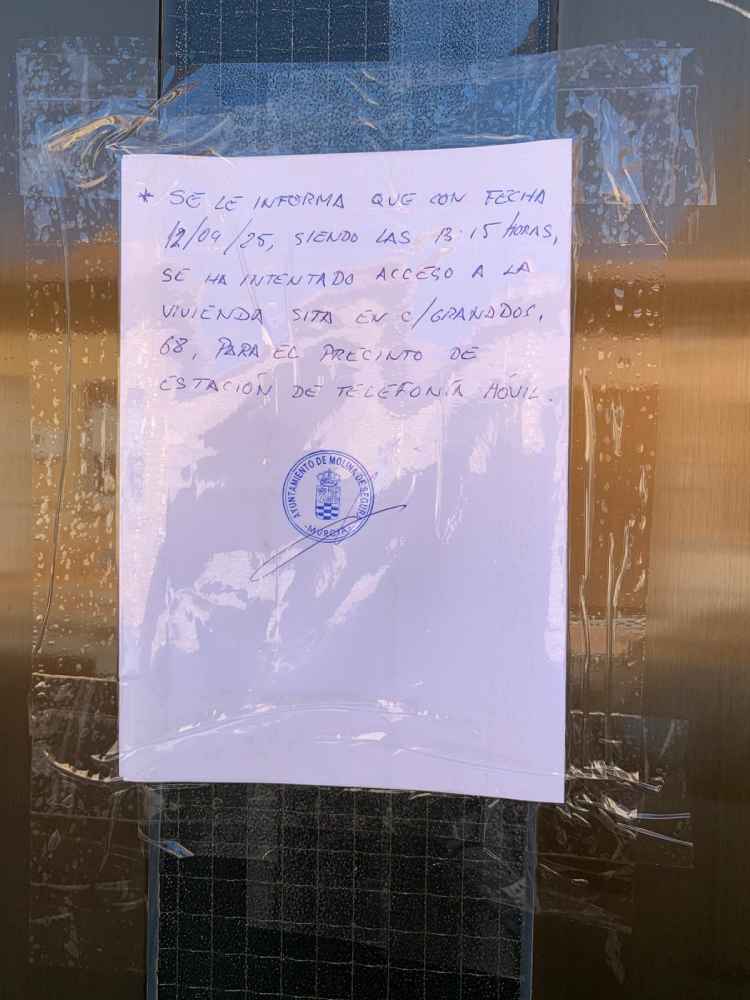 * SE LE INFORMA QUE CON FECHA
12/09/25, SIENDO LAS 13:15 HORAS,
SE HA INTENTADO ACCESO A LA
VIVIENDA SITA EN C/GRANADOS,
68, PARA EL PRECINTO DE
ESTACIÓN DE TELEFONÍA MÓVIL.
AYUNTAMIENTO DE MOLINA DE SEGURA
-MURCIA-